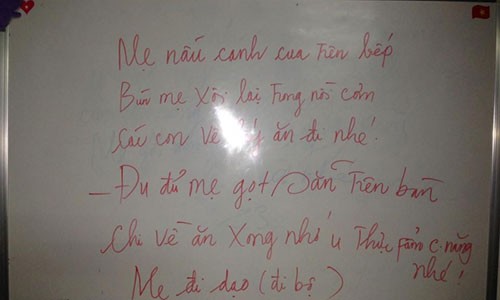 Mẹ nấu canh cua trên bếp
Bún mẹ xôi lại trong nồi cơm
Các con về ăn đi nhé!
– Đu đủ mẹ gọt sẵn trên bàn
Chi về ăn xong nhớ u Thực phẩm c.năng nhé!
Mẹ đi dạo (đi bộ)